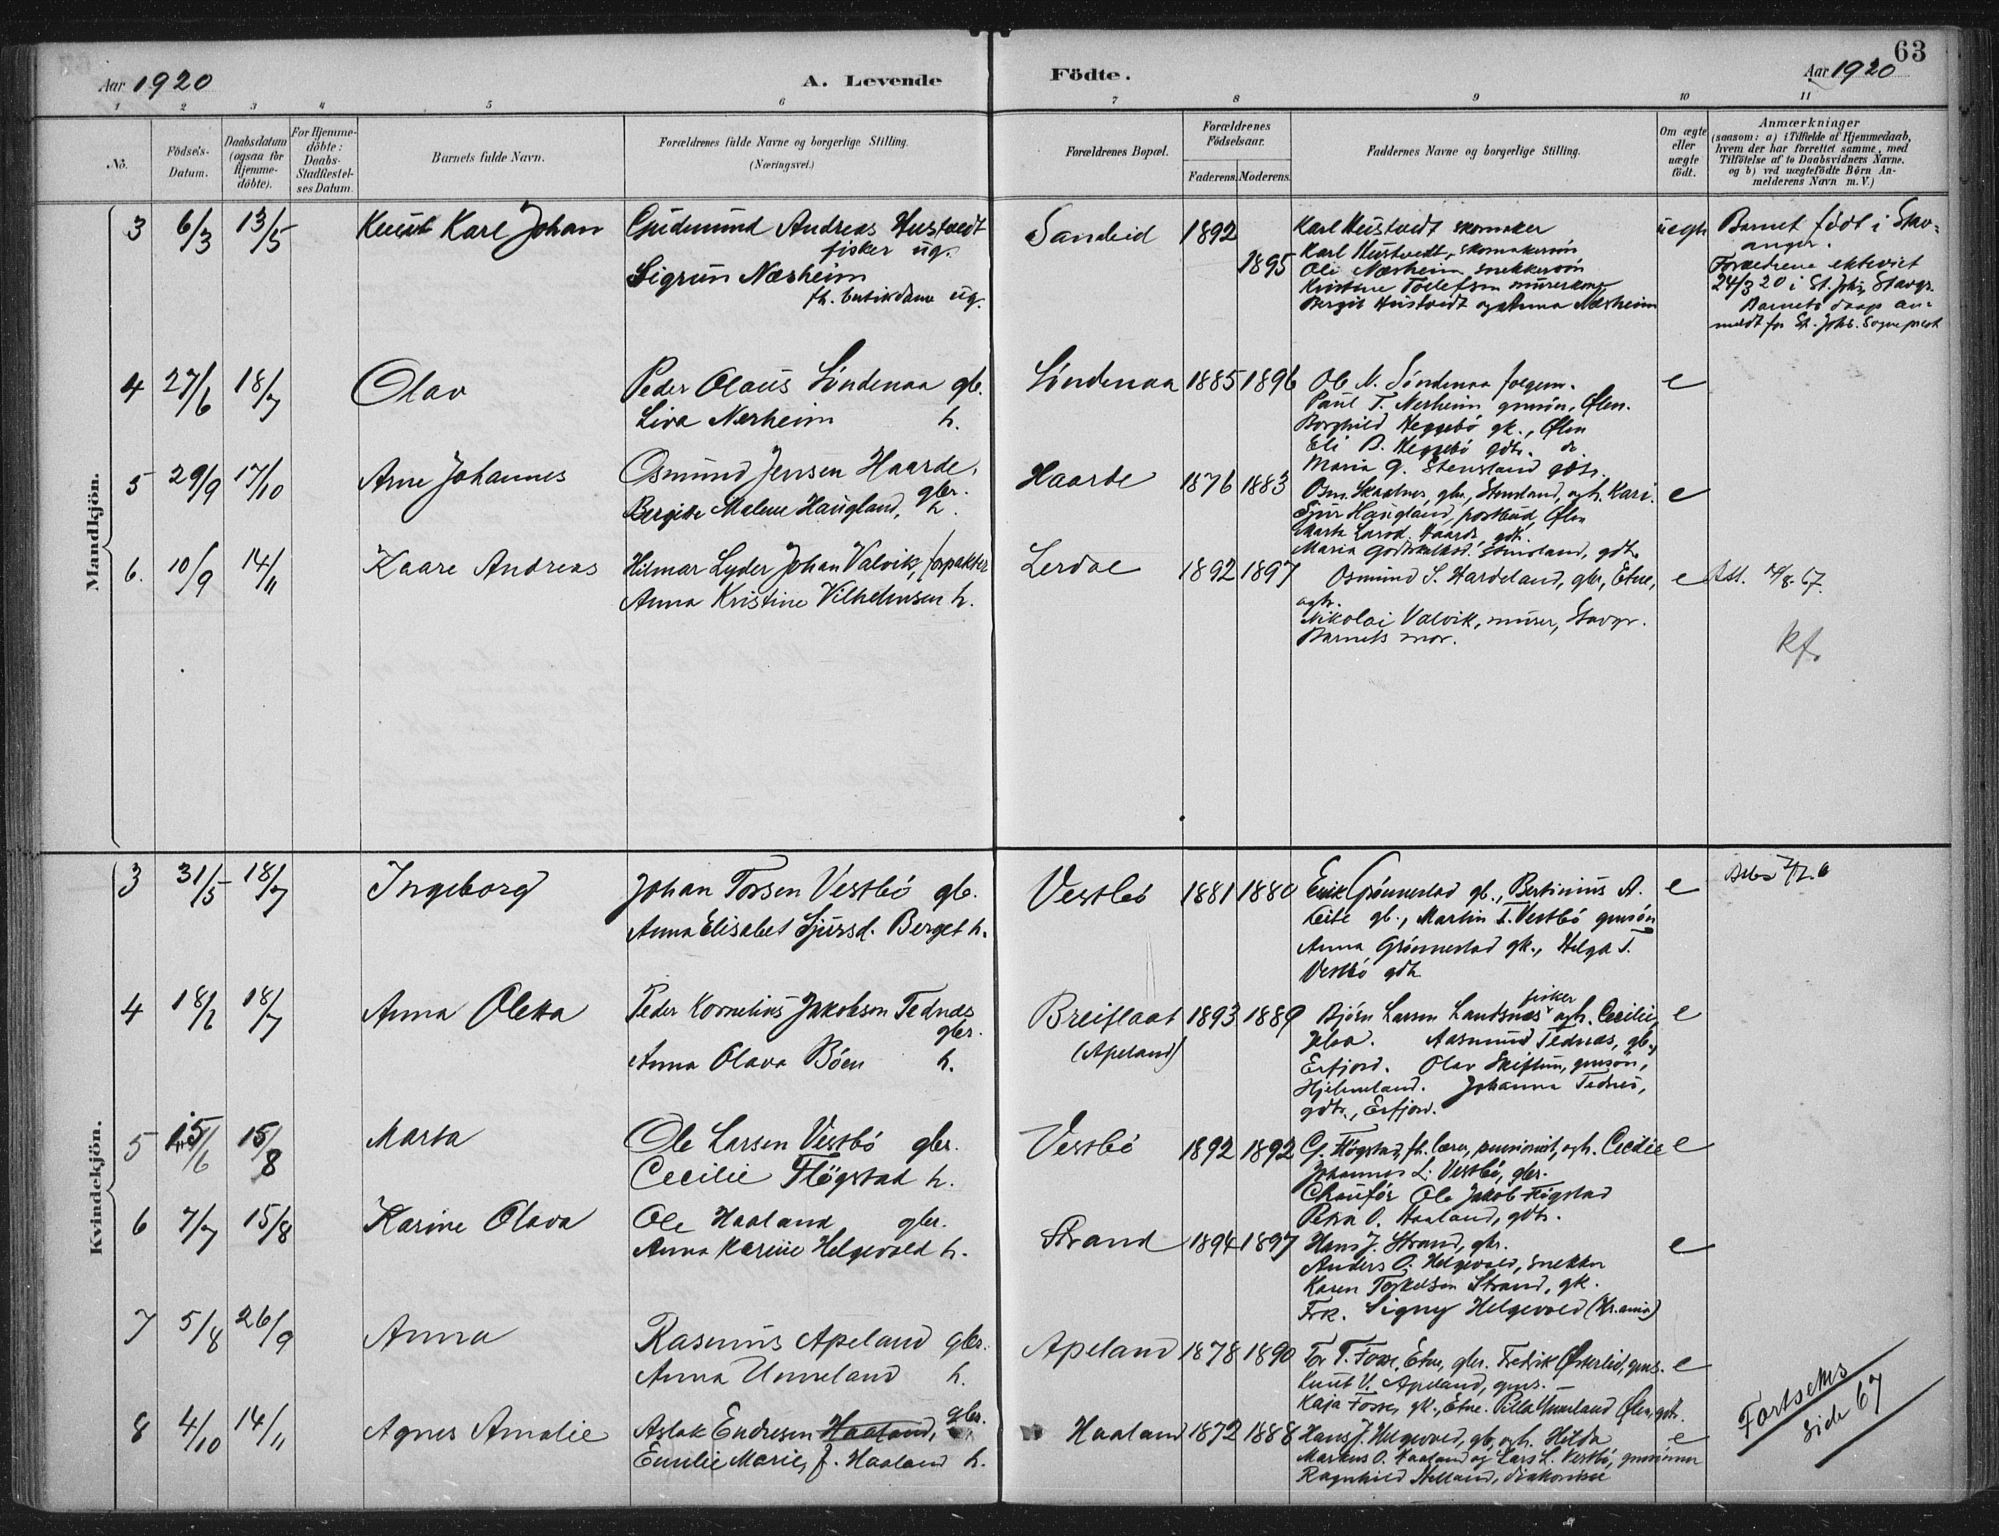 63
Aar 1920
A. Levende
Födte.
Aar 1920
1 2 3 4 5 6 7 8 9 10 11
No.
Födsels-
Datum.
Daabsdatum
(ogsaa for
Hjemme-
döbte).
For Hjemme-
döbte:
Daabs-
Stadfæstel-
ses Datum.
Barnets fulde Navn.
Forældrenes fulde Navne og borgerlige Stilling.
(Næringsvei.)
Forældrenes Bopæl.
Forældrenes
Födselsaar.
Faderens. Moderens.
Faddernes Navne og borgerlige Stilling.
Om ægte
eller
uægte
født.
Anmærkninger
(saasom: a) i Tilfælde af Hjemmedaab,
hvem der har forrettet samme, med
Tilföielse af to Daabsvidners Navne.
og b) ved uægtefödte Börn An-
melderens Navn m. V.)
Mandkjön.
3 6/3 13/5 Knut Karl Johan Gudmund Andreas Hustvedt
fisker ug.
Sigrun Næsheim
fh. butikdame ug.
Sandeid 1892
1895
Karl Hustvedt skomaker
Karl Hustvedt, skomakersøn
Ole Næsheim snekkersøn
Kristine Tollefsen
Bergit Hustvedt og Anna Næsheim
uegte
Barnet født i Stav-
anger.
Forældrene ekteviet
24/3 20 i St. Johs, Stavgr.
Barnets daap an-
meldt for St. Johs. Sogneprest
4 27/6 18/7 Olav Peder Olaus Søndenaa gb.
Liva Nerheim h.
Søndenaa 1885 1896
Ole N. Søndenaa folgem.
Paul T. Nerheim gmsøn, Ølen.
Borghild Heggebø gk., Ølen
Eli B. Heggebø gdtr. do.
Maria G. Stensland gdtr.
e
5 29/9 17/10 Arne Johannes Osmund Jensen Haarde,
gbr.
Bergitte Malene Haugland, h.
Haarde 1876 1883
Osm. Skaalnes, gbr., Stensland, og h. Kari.
Sjur Haugland, postbud, Ølen
Marta Larsd. Haarde, gdt.
Maria Godtskalksd. Stensland, gdt.
e
6. 10/9 14/11 Kaare Andreas Hilmar Lyder Johan Valvik, forpakter
Anna Kristine Vilhelmsen h.
Lerdal 1892 1897
Osmund S. Hardeland, gbr., Etne,
og h.
Nikolai Valvik, murer, Stavgr.
Barnets mor.
e Att. /8-57.
kf.
Kvindekjön.
3 31/5 18/7 Ingeborg Johan Torsen Vestbø gb.
Anna Elisabet Sjursd. Berget h.
Vestbø 1881 1880
Erik Grønnestad gb., Bertinius A.
Leite gb., Martin T. Vestbø gmsøn
Anna Grønnestad gk., Helga T.
Vestbø gdt.
e
4 18/6 18/7 Anna Oletta Peder Kornelius Jakobsen Tednes
gbr.
Anna Olava Bøen h.
Breiflaat
(Apeland)
1893 1889
fisker
Bjørn Larsen Landsnes og h. Cecilie,
Jelsa. Aasmund Tednes, gb.,
Erfjord. Olav Skiftun, gmsøn,
Hjelmeland. Johanna Tednes,
gdtr., Erfjord.
e
5 15/6 15/8 Marta Ole Larsen Vestbø gbr.
Cecilie Fløgstad h.
Vestbø 1892 1892
G. Fløgstad, fh. lærer, pensionist, og h. Cecilie
Johannes L. Vestbø, gbr.
Chauför Ole Jakob Fløgstad
Petra O. Haaland, gdt.
e
6 7/7 15/8 Karine Olava Ole Haaland gbr.
Anna Karine Helgevold h.
Strand 1894 1897
Hans J. Strand, gbr.
Anders O. Helgevold, snekker
Karen Torkelsen Strand, gk.
Frk. Signy Helgevold (Kr.ania)
e
7 5/8 26/9 Anna Rasmus Apeland gbr.
Anna Unneland h.
Apeland 1878 1890
Tor T. Fosse, Etne, gbr. Fredrik Østerlid, gms.
Knut V. Apeland, gms.
Kaja Fosse, gk., Etne. Pilla Unneland Ølen, gdtr.
e
8 4/10 14/11 Agnes Amalie Aslak Endresen Haaland, gbr.
Emilie Marie, f. Haaland h.
Haaland 1872 1888
Hans J. Helgevold, gb, og h. Hilda
Markus O. Haaland og Lars L. Vestbø, gmsønner
Ragnhild Helland, diakonisse
e
Fortsettes
side 67